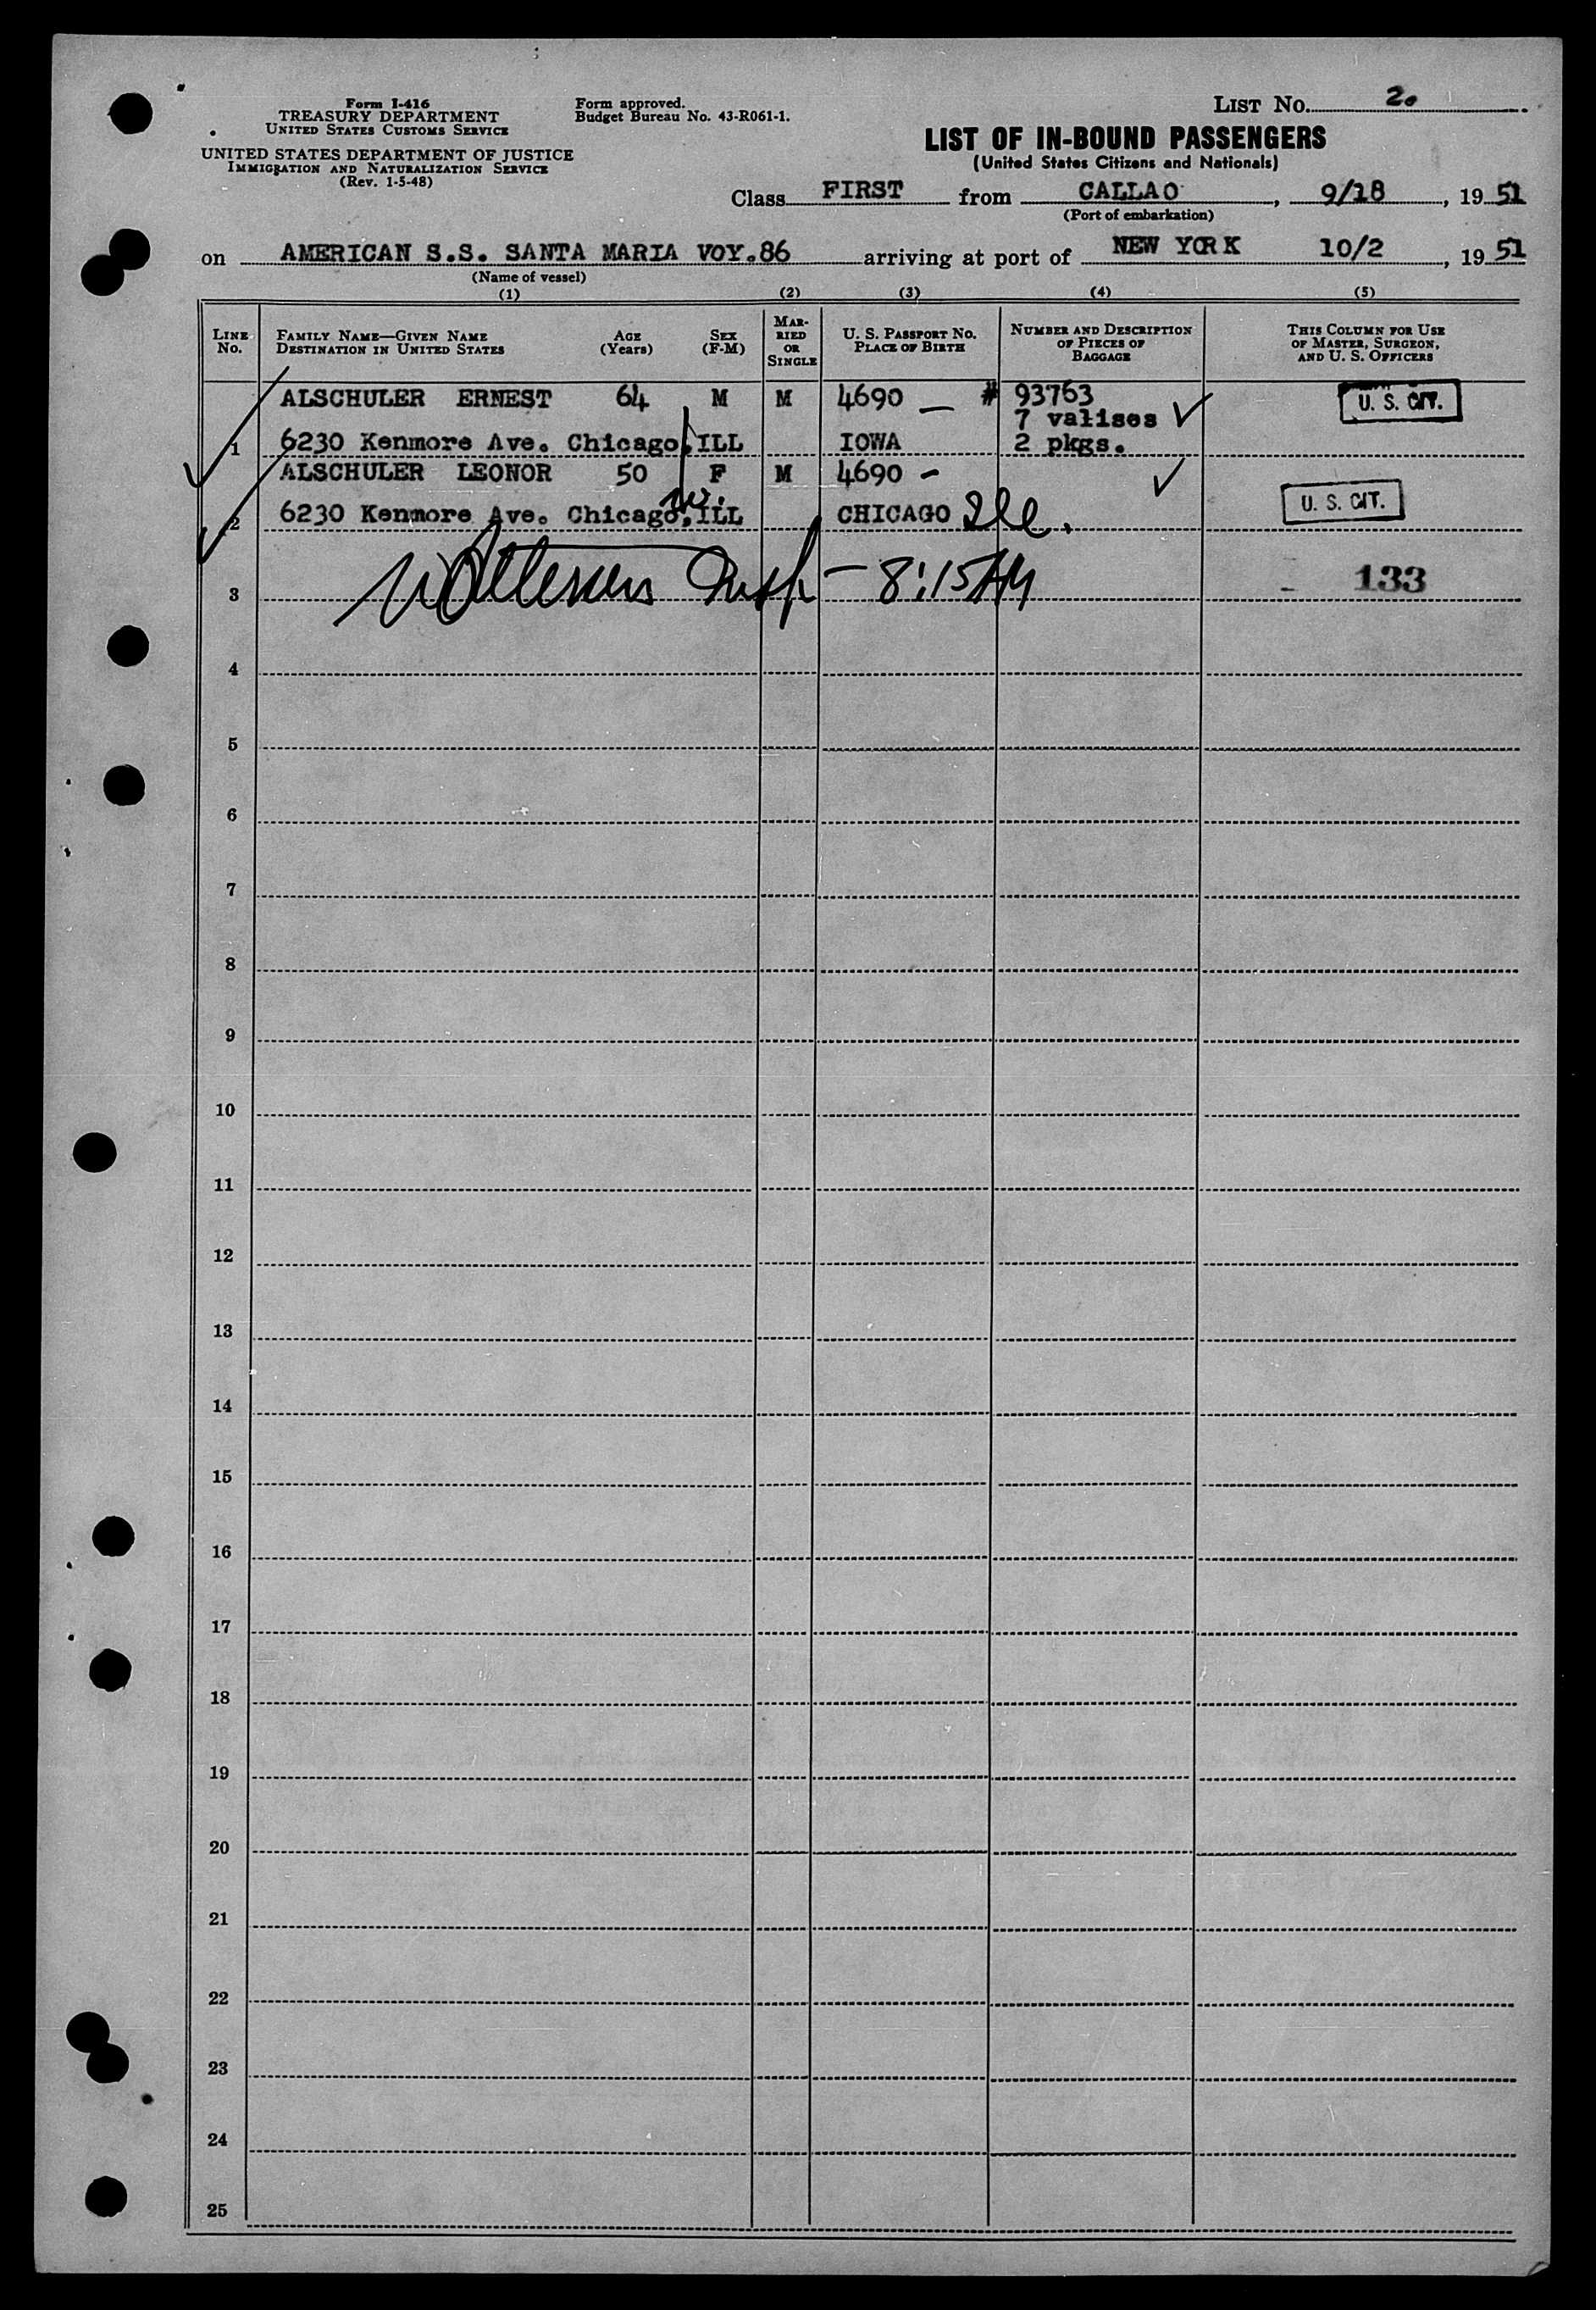 Form I-416
TREASURY DEPARTMENT
UNITED STATES CUSTOMS SERVICE
UNITED STATES DEPARTMENT OF JUSTICE
IMMIGRATION AND NATURALIZATION SERVICE
(Rev. 1-5-48)
Form approved.
Budget Bureau No. 43-R061-1.
LIST NO. 20
LIST OF IN-BOUND PASSENGERS
(United States Citizens and Nationals)
Class FIRST from CALLAO, 9/18, 1951
(Port of embarkation)
on AMERICAN S.S. SANTA MARIA VOY.86 arriving at port of NEW YORK 10/2, 1951
(Name of vessel)
(1) (2) (3) (4) (5)
LINE NO.
FAMILY NAME—GIVEN NAME
DESTINATION IN UNITED STATES
AGE (Years)
SEX (F-M)
MARRIED OR SINGLE
U. S. PASSPORT NO.
PLACE OF BIRTH
NUMBER AND DESCRIPTION OF PIECES OF BAGGAGE
THIS COLUMN FOR USE OF MASTER, SURGEON, AND U. S. OFFICERS
ALSCHULER ERNEST 64 M M 4690 — # 93763 U. S. CIT.
7 valises ✓
1 6230 Kenmore Ave. Chicago, ILL IOWA 2 pkgs.
ALSCHULER LEONOR 50 F M 4690 - ✓
2 6230 Kenmore Ave. Chicago, ILL CHICAGO Ill. U. S. CIT.
3 Insp - 8:15 AM - 133
4
5
6
7
8
9
10
11
12
13
14
15
16
17
18
19
20
21
22
23
24
25